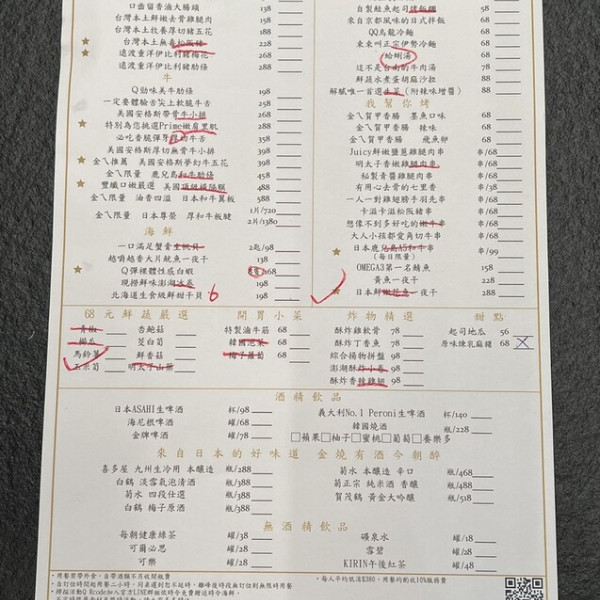 口齒留香油大腸頭 138
台灣本土鮮嫩去骨雞腿肉 258
台灣本土牧養厚切豬五花 168
★ 台灣本土無毒松阪豬 228
★ 遠渡重洋伊比利豬梅花 268
遠渡重洋伊比利豬肋條 268
牛
Q勁味美牛胸肉 198
一定要體驗舌尖上軟腿牛舌 258
美國安格斯帶骨牛小排 268
★ 特別為您挑選Prime嫩肩里肌 288
必吃香脆彈牙牛舌 358
美國安格斯厚切無骨牛小排 398
★ 金八推薦 美國安格斯夢幻牛五花 358
金八限量 鹿兒島和牛肋條 458
★ 豐孅口嫩嚴選 美國頂級橫隔膜 488
金八限量 油香四溢 日本和牛翼板 588
金八限量 日本尊榮 厚和牛板腱 1片/720
2片/1380
海鮮
一口滿足蟹膏 2匙/98
越嚼越香大片魷魚一夜干 138
★ Q彈裸體性感白蝦 168
現撈鮮味澎湖冰卷 198
北海道生食級鮮甜干貝 6 198
自製鮭魚起司烤飯糰 58
來自京都風味的日式拌飯 68
QQ烏龍冷麵 68
東東叫正宗伊勢冷麵 68
蛤蜊湯 68
這不是台南的牛肉湯 78
鮮蔬水煮蛋胡麻沙拉 88
解膩唯一首選生菜(附辣味增醬) 88
我幫你烤
金八賀甲香腸 墨魚口味 68
金八賀甲香腸 辣味 68
金八賀甲香腸 飛魚卵 68
Juicy鮮嫩鹽蔥雞腿肉串 串/68
明太子香嫩雞腿肉串 串/68
秘製青醬雞腿肉串 串/68
有用心去骨的七里香 串/38
一人一對雞翅膀手羽先串 串/68
卡滋卡滋松阪豬串 串/68
想像不到多好吃的嫩牛串 串/68
大人小孩都愛角切牛串 串/68
★ 日本鹿兒島A5和牛串 串/99
(每日限量)
OMEGA3第一名鯖魚 158
黃魚一夜干 228
★ 日本鮮嫩花魚一夜干 288
68元鮮蔬嚴選
青椒 杏鮑菇
櫛瓜 茭白筍
馬鈴薯 鮮香菇
玉米筍 明太子山藥
開胃小菜
特製滷牛筋 68
韓國泡菜 68
梅子蘿蔔 68
炸物精選
酥炸雞軟骨 78
酥炸丁香魚 78
綜合揚物拼盤 98
澎湖酥炸小卷 98
酥炸香辣雞翅 98
甜點
起司地瓜 56
原味煉乳麻糬 68
酒精飲品
日本ASAHI生啤酒 杯/98
海尼根啤酒 罐/68
金牌啤酒 罐/78
義大利No.1 Peroni生啤酒 杯/140
韓國燒酒 瓶/228
□蘋果□柚子□蜜桃□葡萄□養樂多
來自日本的好味道 金燒有酒今朝醉
喜多屋 九州生冷用 本釀造 瓶/288
白鶴 淡雪氣泡清酒 瓶/388
菊水 四段仕選 瓶/388
白鶴 梅子原酒 瓶/388
菊水 本釀造 辛口 瓶/468
菊正宗 純米酒 香釀 瓶/488
賀茂鶴 黃金大吟釀 瓶/518
無酒精飲品
每朝健康綠茶 罐/38
可爾必思 罐/28
可樂 罐/28
礦泉水 罐/18
雪碧 罐/28
KIRIN午後紅茶 罐/48
・用餐禁帶外食,自帶酒類不另收開瓶費
・每人平均低消$380,用餐均酌收10%服務費